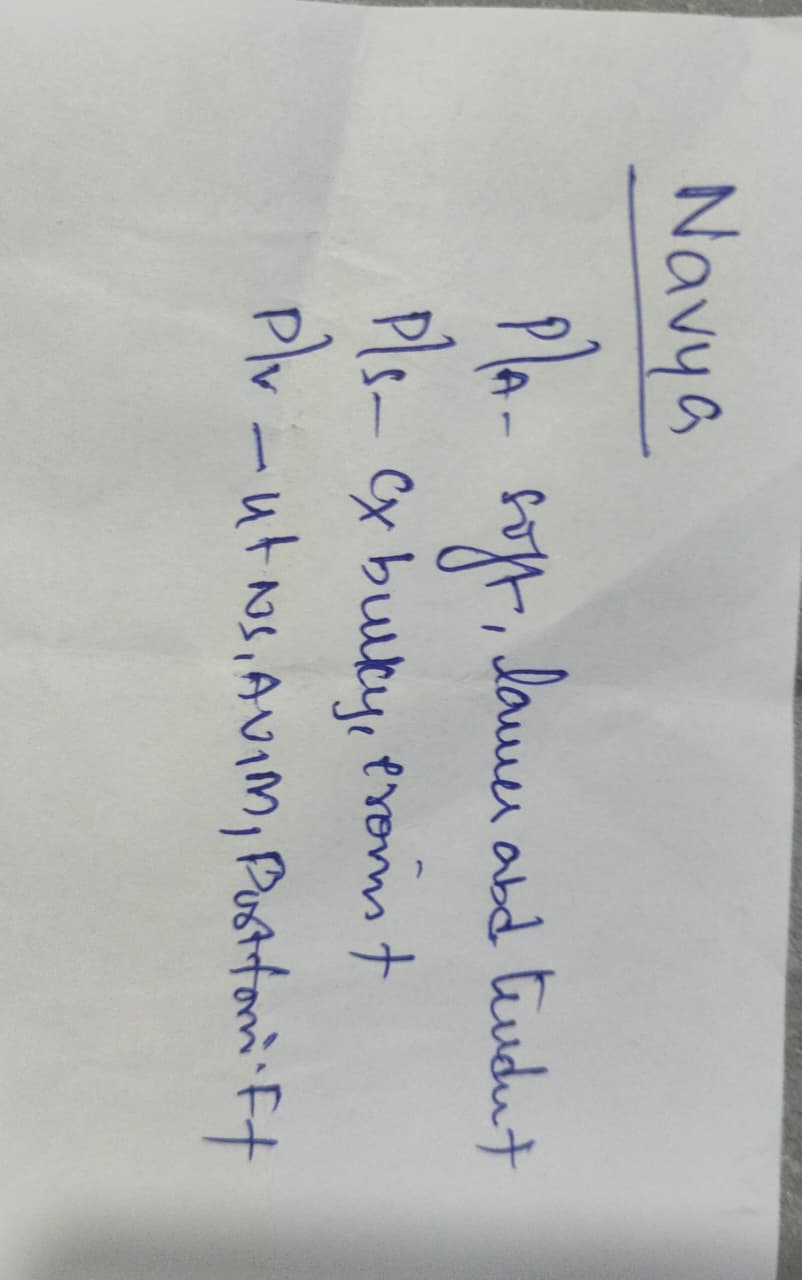 Navya
P/A- soft, lower abd tender+
P/S- Cx bulky, erosions+
P/V - ut NS, AV, M, Post forni. F+